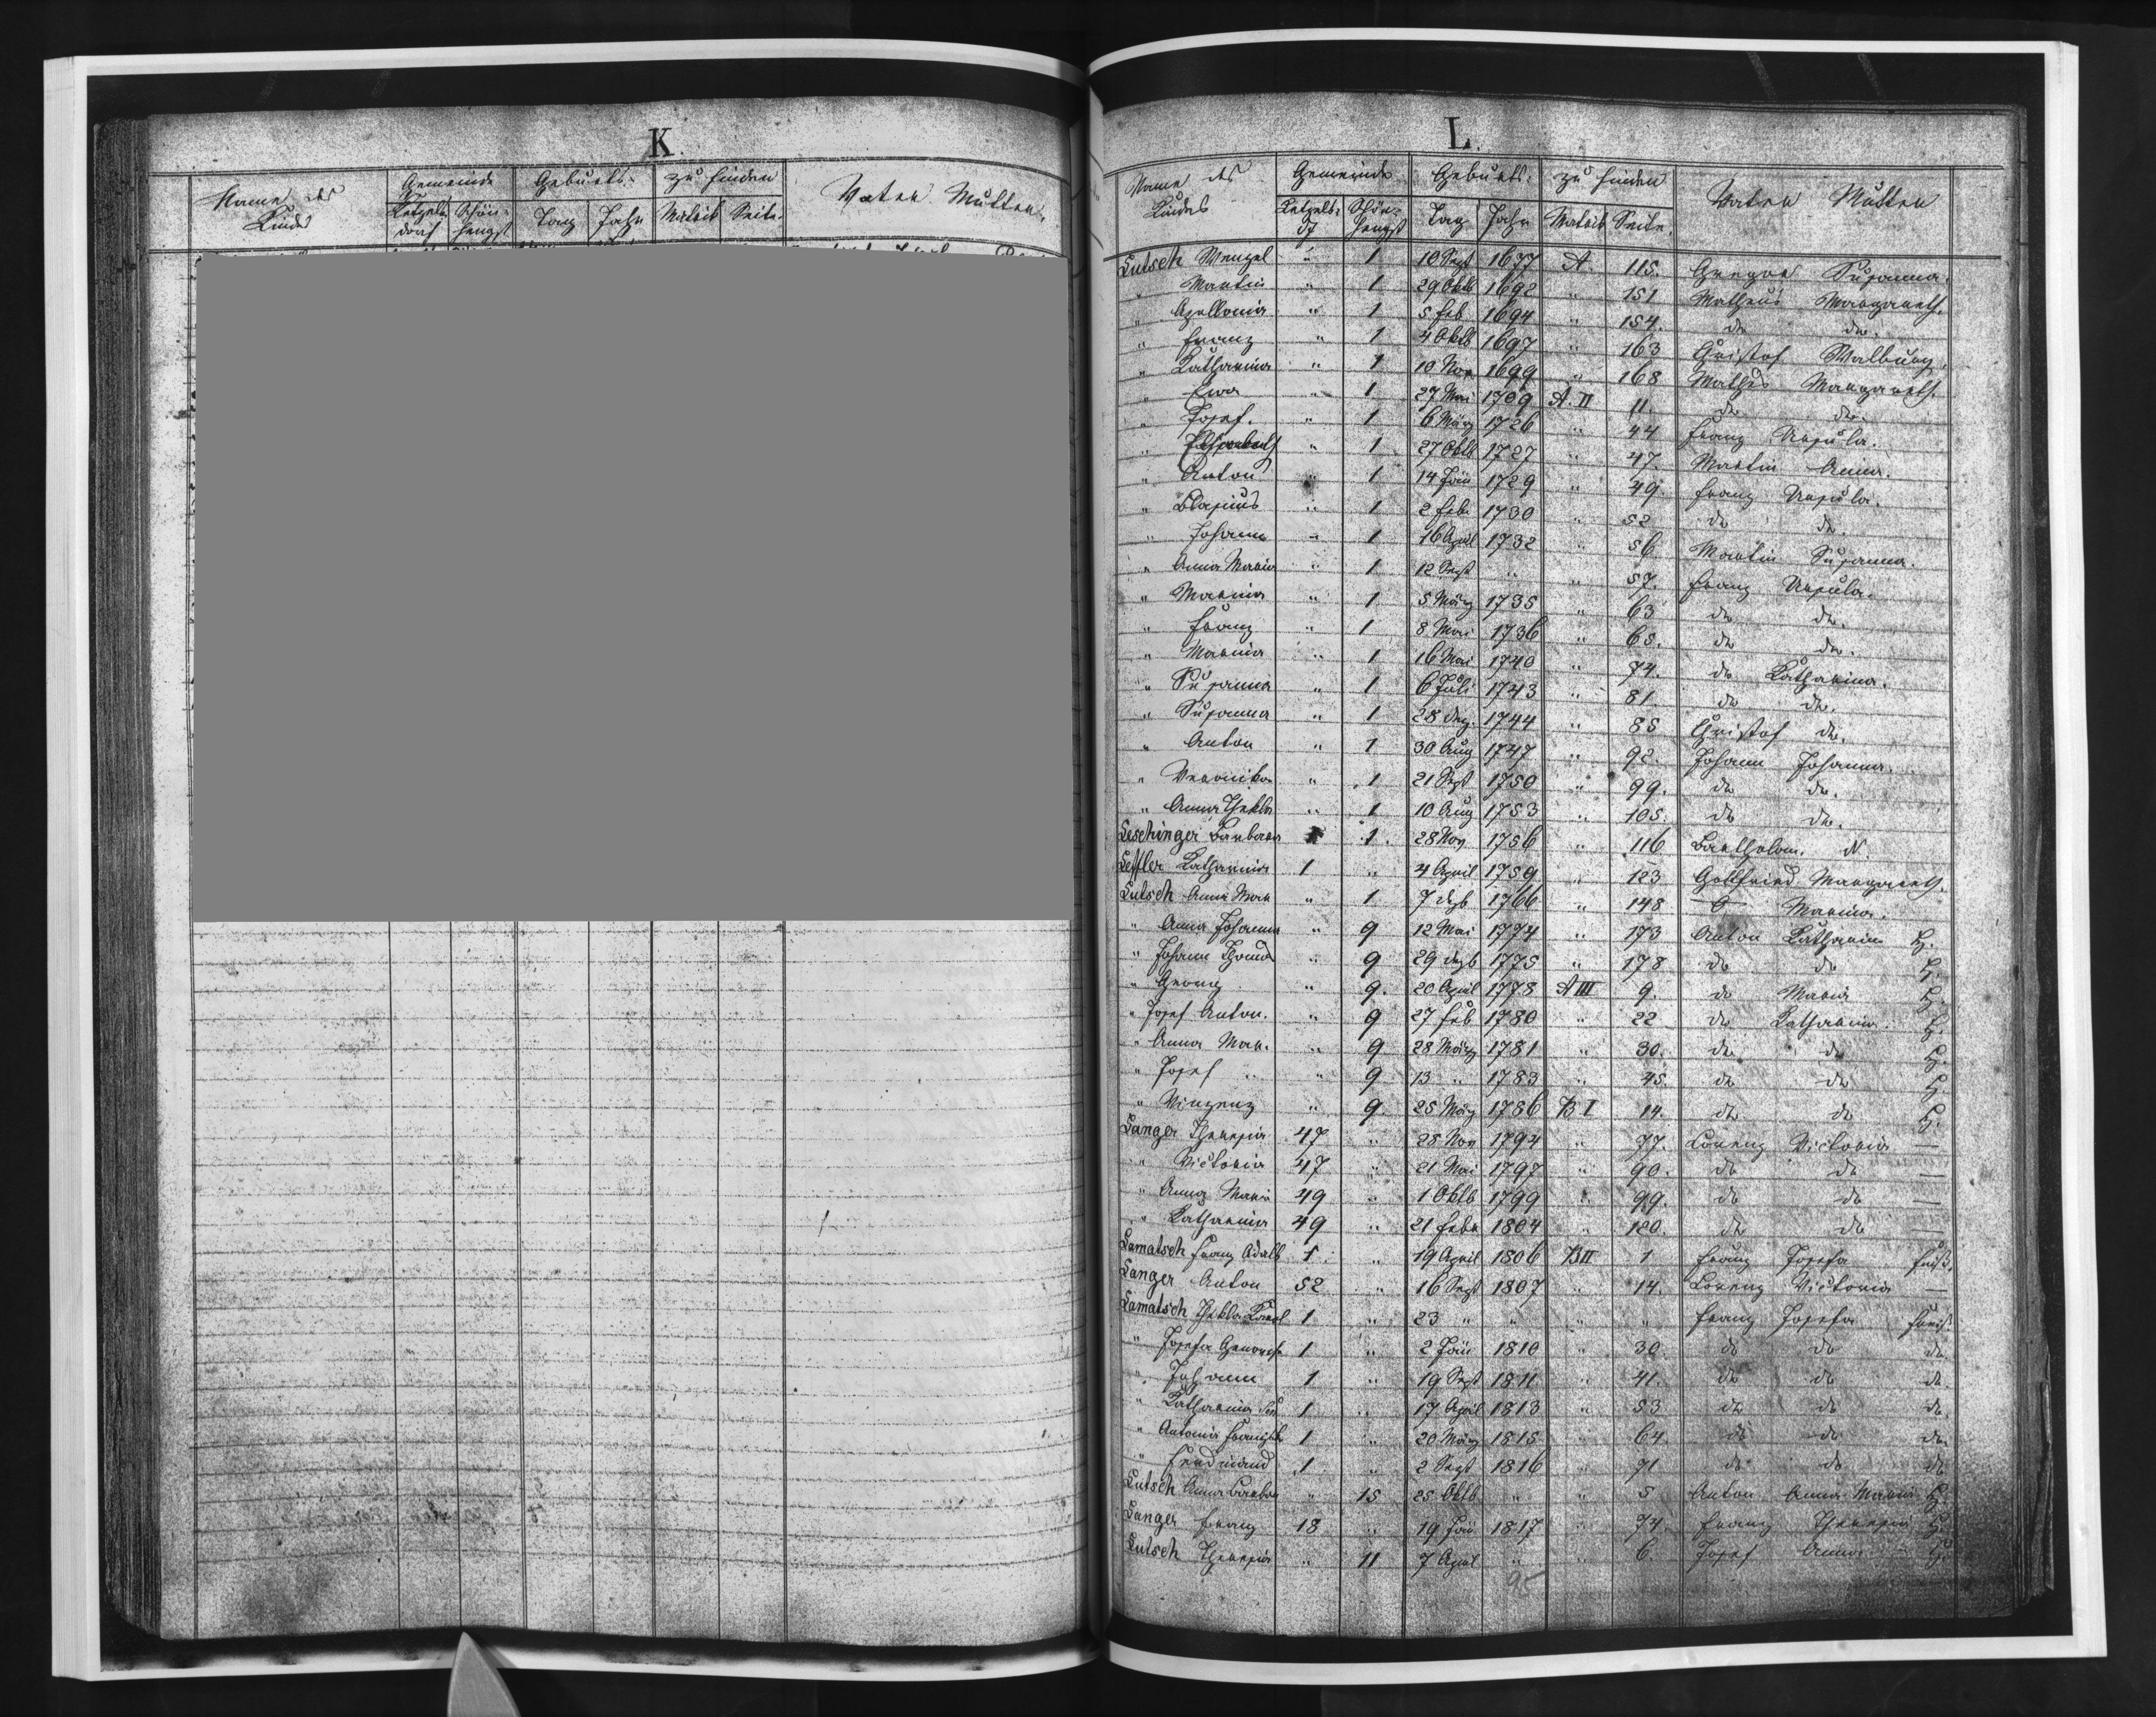 K.
Name des Kindes
Gemeinde
Ketzels dorf
Schön- hengst
Geburts-
Tag
Jahr
zu finden
Matrik
Seite.
Vater Mutter.
L.
Name des Kindes
Gemeinde
Ketzelsdf
Schön- hengst
Geburts-
Tag
Jahr
zu finden
Matrik
Seite.
Vater Mutter
Lutsch Wenzel " 1 10 Sept 1677 A. 115. Gregor Susanna.
" Martin " 1 29 Oktb 1692 " 151 Matheus Margareth.
" Apollonia " 1 5 Feb 1694 " 154. do do.
" Franz " 1 4 Oktb 1697 " 163 Christof Walburg.
" Katharina " 1 10 Nov 1699 " 168 Mathes Margareth.
" Eva " 1 27 Mai 1709 A. II 11. do do.
" Josef. " 1 6 März 1726 " 44 Franz Ursula.
" " 1 27 Oktb 1727 " 47. Martin Anna.
" Anton " 1 14 Jän 1729 " 49. Franz Ursula.
" Blasius " 1 2 Feb. 1730 " 52 do do.
" Johann " 1 16 April 1732 " 56. Martin Susanna.
" Anna Maria " 1 12 Sept " " 57. Franz Ursula.
" Marina " 1 5 März 1735 " 63 do do.
" Franz " 1 8 Mai 1736 " 68. do do.
" Marina " 1 16 Mai 1740 " 74. do Katharina.
" Susanna " 1 6 Juli 1743 " 81. do do.
" Susanna " 1 28 Dez. 1744 " 85 Christof do.
" Anton " 1 30 Aug 1747 " 92. Johann Johanna.
" Veronika " 1 21 Sept 1750 " 99. do do.
" Anna Thekla " 1 10 Aug 1753 " 105. do do.
Leschinger Barbara 1. 28 Nov 1756 " 116 Bartholom. N.
Leffler Katharina 1 " 4 April 1759 " 123 Gottfried Margareth.
Lutsch Anna Mar " 1 7 Dezb 1766 " 148 Marina.
" Anna Johanna " 9 12 Mai 1774 " 173 Anton Katharina H.
" Johann Thomas " 9 29 Dezb 1775 " 178 do do H.
" Georg " 9. 20 April 1778 A III 9. do Maria H.
" Josef Anton. " 9 27 Feb 1780 " 22 do Katharina. H.
" Anna Mar. " 9 28 März 1781 " 30. do do H.
" Josef " 9 13 " 1783 " 45. do do H.
" Vinzenz " 9. 25 März 1786 B I 14. do do H.
Langer Theresia 47 " 28 Nov 1794 " 77. Lorenz Victoria —
" Victoria 47 " 21 Mai 1797 " 90. do do —
" Anna Maria 49 " 1 Oktb 1799 " 99. do do —
" Katharina 49 " 21 Febr 1804 " 120. do do —
Lamatsch Franz Adalb 1. " 19 April 1806 B II 1 Franz Josefa
Langer Anton 52 " 16 Sept 1807 " 14. Lorenz Victoria —
Lamatsch Thekla Karol 1 " 23 " " " " Franz Josefa
" Josefa 1 " 2 Jän 1810 " 30. do do do.
" Johann 1 " 19 Sept 1811 " 41. do do do.
" Katharina 1 " 17 April 1813 " 53 do do do.
" Antonia 1 " 20 März 1815 " 64 do do do.
" Ferdinand 1 " 2 Sept 1816 " 71 do do do
Lutsch Anna Barbara " 15 25 Oktb " " 5 Anton Anna Maria H.
Langer Franz 18 " 19 Jän 1817 " 74. Franz Theresia H.
Lutsch Theresia " 11 7 April " " 6. Josef Anna H.
95